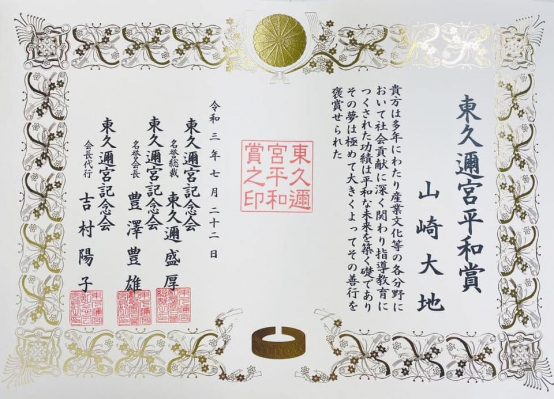 東久邇宮平和賞
山崎大地
貴方は多年にわたり産業文化等の各分野に
おいて社会貢献に深く関わり指導教育に
つくされた功績は平和な未来を築く礎であり
その夢は極めて大きくよってその善行を
褒賞せられた
東久邇
宮平和
賞之印
令和三年七月二十二日
東久邇宮記念会
名誉総裁 東久邇盛厚
東久邇宮記念会
名誉会長 豊澤豊雄
東久邇宮記念会
会長代行 吉村陽子